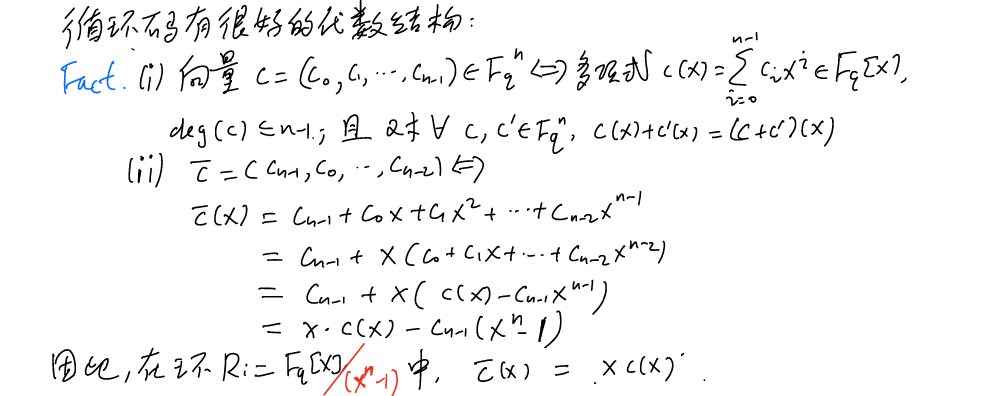 循环码有很好的代数结构:
Fact. (i) 向量 c = (c₀, c₁, ⋯, cₙ₋₁) ∈ F_q^n ⟺ 多项式 c(x) = ∑_{i=0}^{n-1} cᵢxⁱ ∈ F_q[x],
deg(c) ≤ n-1; 且对∀ c, c' ∈ F_q^n, c(x)+c'(x) = (c+c')(x)
(ii) c̄ = (cₙ₋₁, c₀, ⋯, cₙ₋₂) ⟺
c̄(x) = cₙ₋₁ + c₀x + c₁x² + ⋯ + cₙ₋₂xⁿ⁻¹
= cₙ₋₁ + x(c₀ + c₁x + ⋯ + cₙ₋₂xⁿ⁻²)
= cₙ₋₁ + x(c(x) - cₙ₋₁xⁿ⁻¹)
= x·c(x) - cₙ₋₁(xⁿ - 1)
因此, 在环 R := F_q[x]/(xⁿ-1) 中, c̄(x) = x c(x).